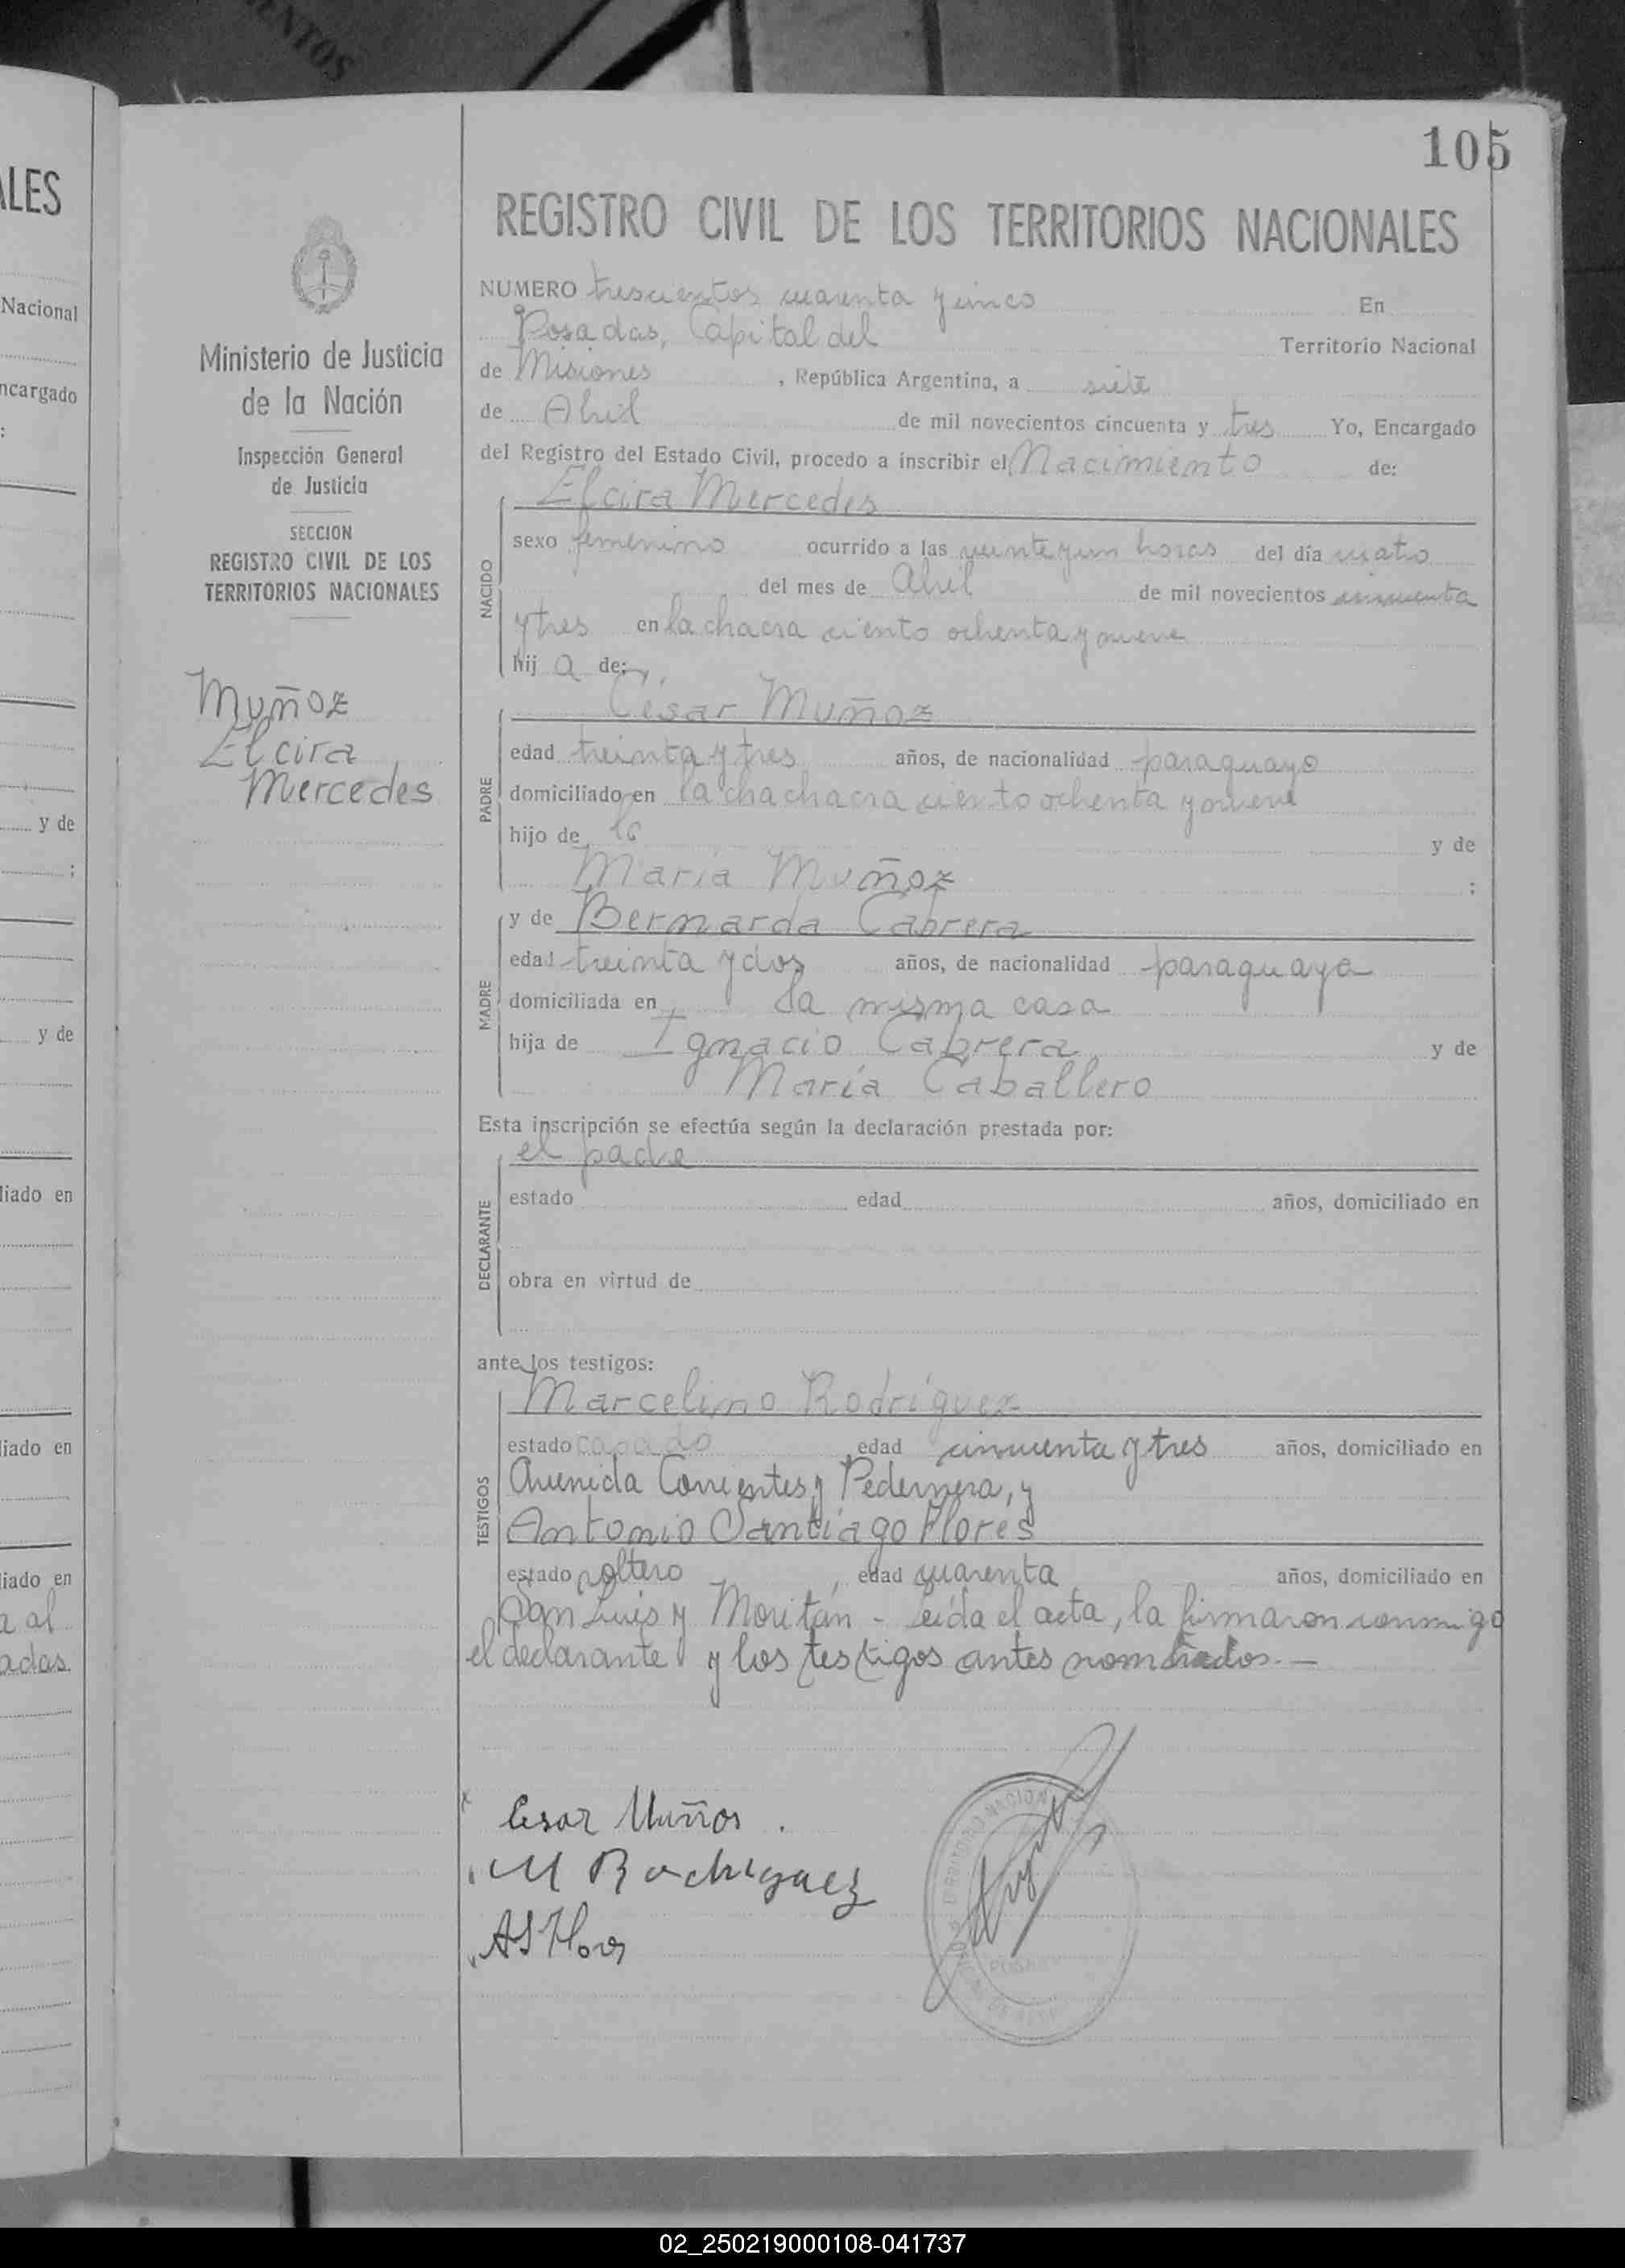 105
REGISTRO CIVIL DE LOS TERRITORIOS NACIONALES
NUMERO trescientos cuarenta y cinco En
Posadas, Capital del Territorio Nacional
de Misiones , República Argentina, a siete
de Abril de mil novecientos cincuenta y tres Yo, Encargado
del Registro del Estado Civil, procedo a inscribir el Nacimiento de:
Elcira Mercedes
NACIDO
sexo femenino ocurrido a las veinte y un horas del día cuatro
del mes de Abril de mil novecientos cincuenta
y tres en la chacra ciento ochenta y nueve
hij a de:
César Muñoz
PADRE
edad treinta y tres años, de nacionalidad paraguayo
domiciliado en la chachacra ciento ochenta y nueve
hijo de y de
María Muñoz ;
MADRE
y de Bernarda Cabrera
edad treinta y dos años, de nacionalidad paraguaya
domiciliada en la misma casa
hija de Ignacio Cabrera y de
María Caballero
Esta inscripción se efectúa según la declaración prestada por:
el padre
DECLARANTE
estado edad años, domiciliado en
obra en virtud de
ante los testigos:
Marcelino Rodríguez
TESTIGOS
estado casado edad cincuenta y tres años, domiciliado en
Avenida Corrientes y Pedernera, y
Antonio Santiago Flores
estado soltero , edad cuarenta años, domiciliado en
San Luis y Moritán - Leída el acta, la firmaron conmigo
el declarante y los testigos antes nombrados.—
Cesar Muños.
M Rodriguez
AS Flores
TERRITORIO NACIONAL
Ministerio de Justicia
de la Nación
Inspección General
de Justicia
SECCION
REGISTRO CIVIL DE LOS
TERRITORIOS NACIONALES
Muñoz
Elcira
Mercedes
ALES
Nacional
ncargado
:
y de
;
y de
liado en
liado en
liado en
a al
adas.
02_250219000108-041737